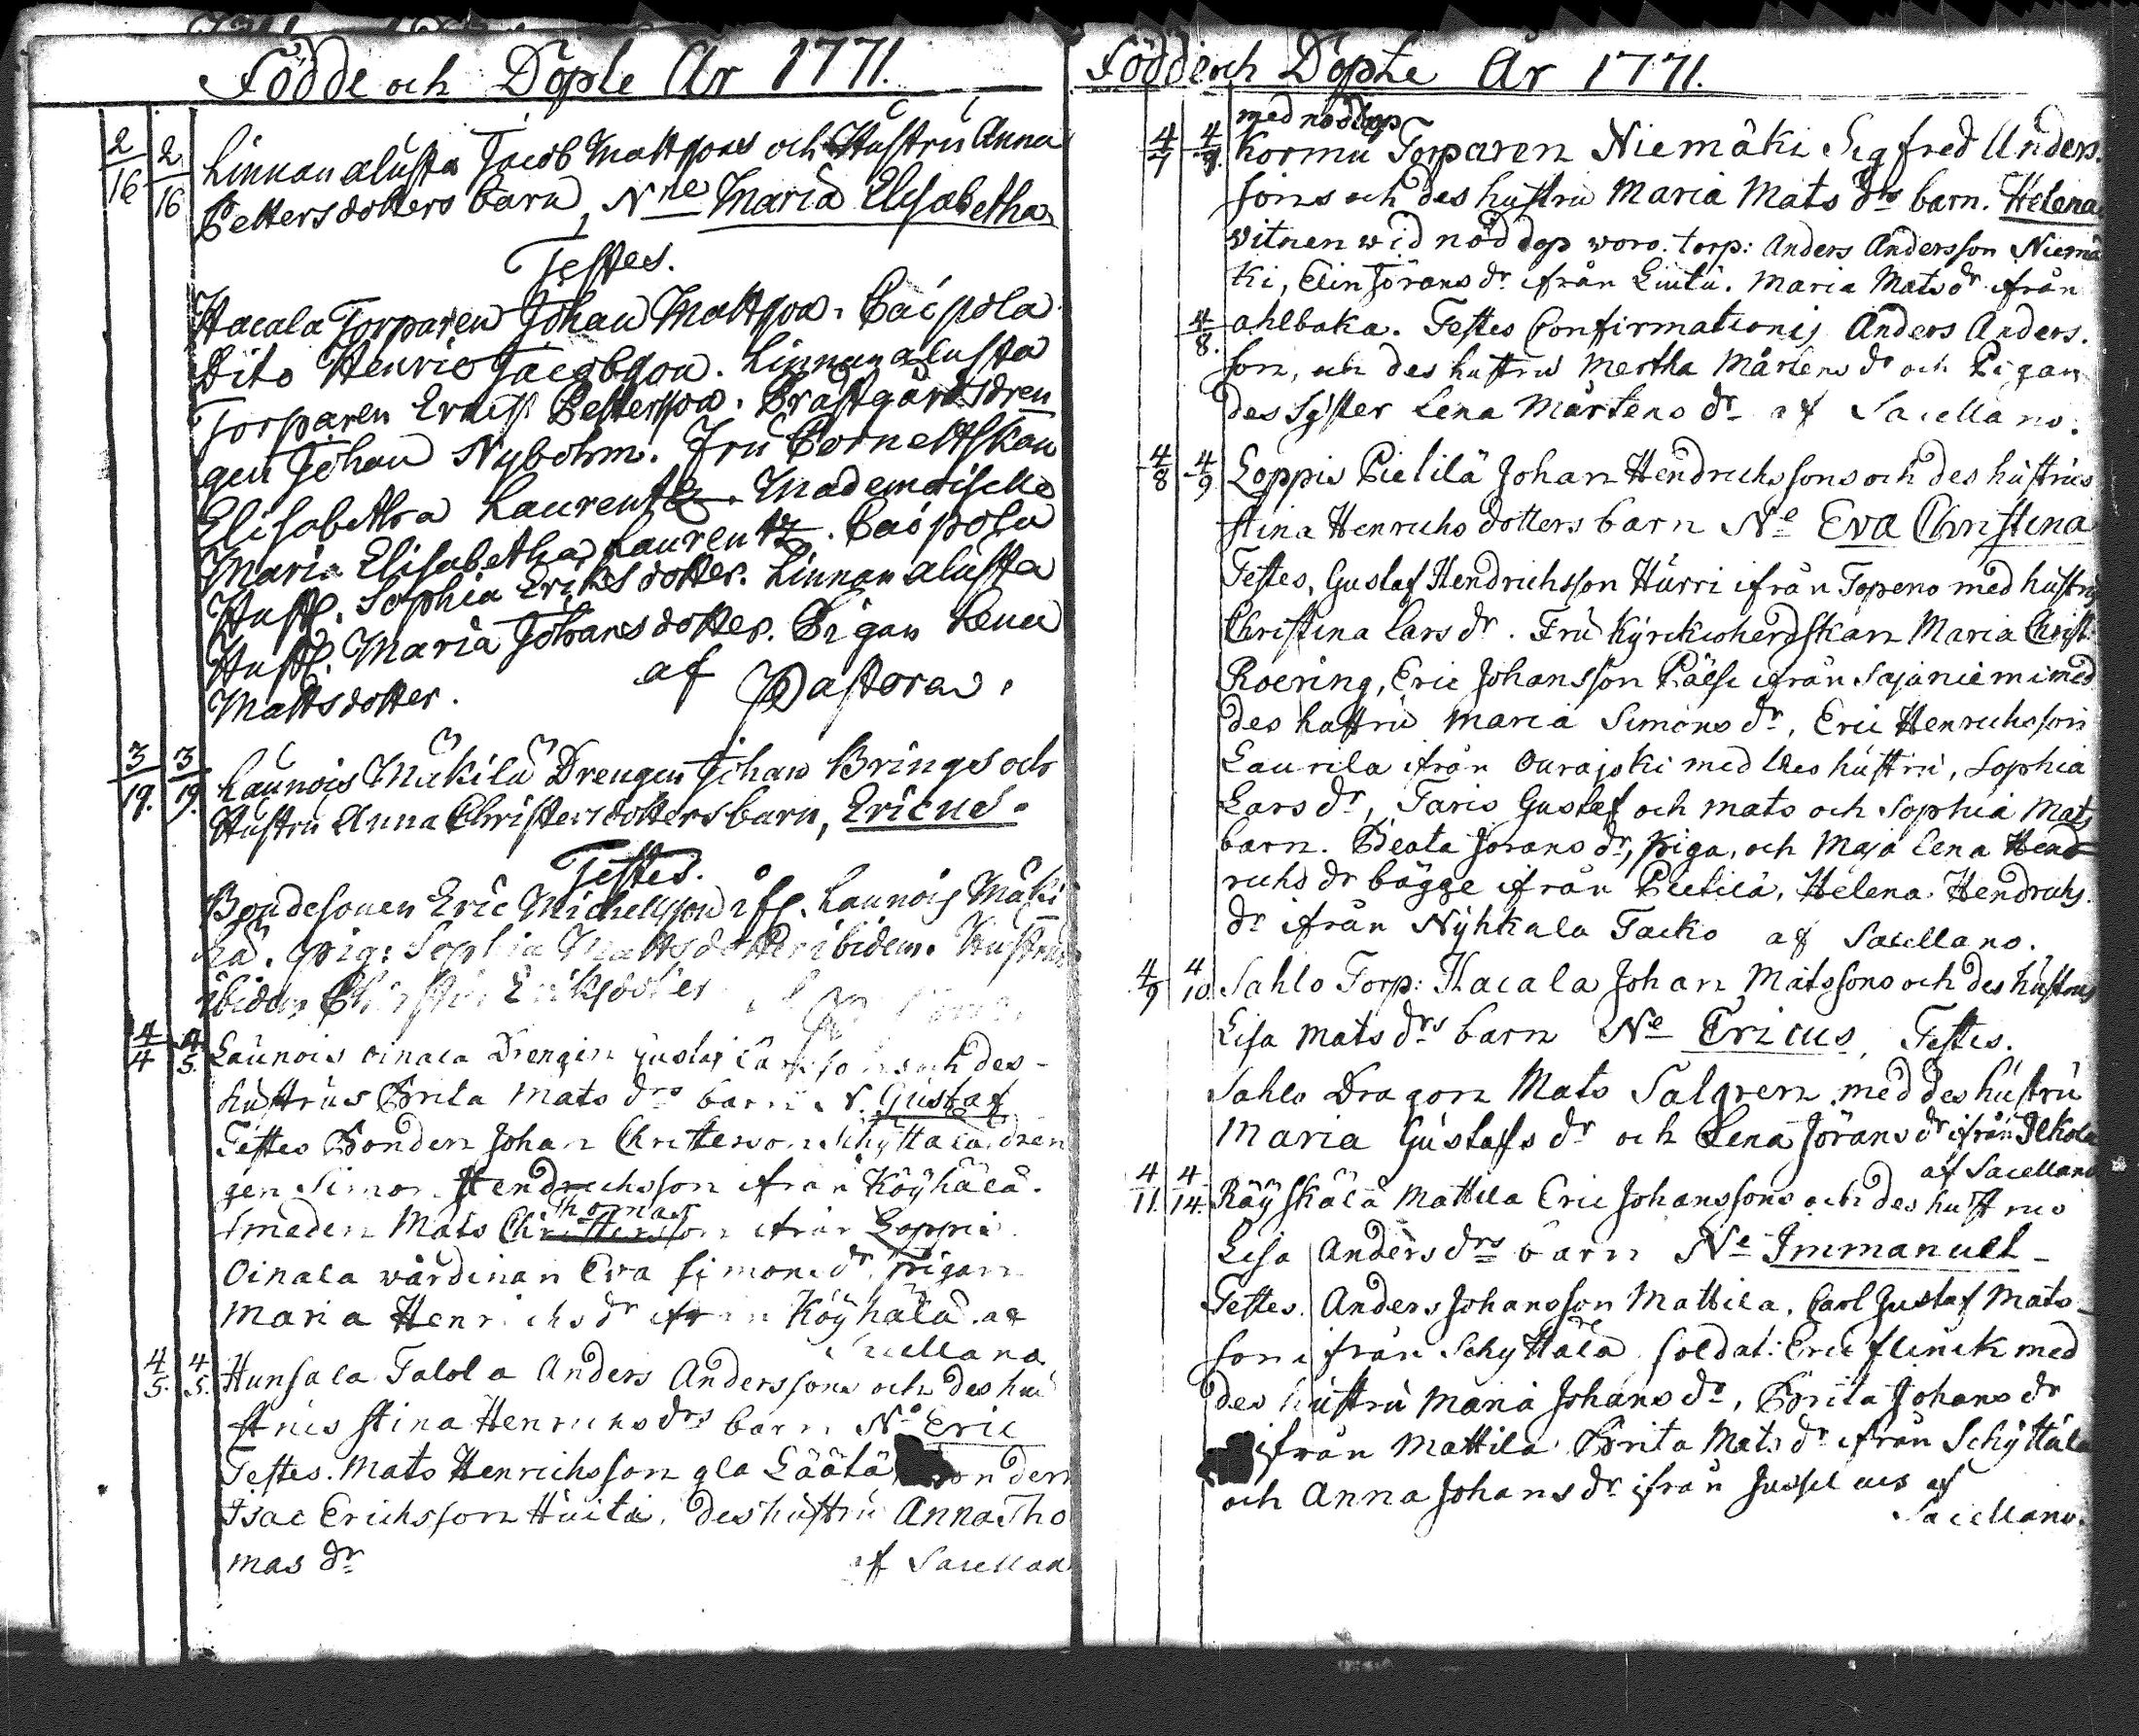 Födde och Döpte År 1771.
2/16 2/16 Linnanalusta Jacob Mattsons och Hustru Anna
Pettersdotters barn, Nne Maria Elisabetha
Testes.
Hacala Torparen Johan Mattson. Caipola
Dito Henric Jacobson. Linnanalusta
Torparen Ernst Pettersson. Prästgårdsdren
gen Johan Nybohm. Fru Cornettskan
Elisabetha Laurentz. Mademoiselle
Maria Elisabetha Laurentz. Caipola
Hust. Sophia Eriksdotter. Linnanalusta
Hust. Maria Johansdotter. Pigan Lena
Mattsdotter. af Pastoren.
3/19. 3/19. Launois Mickilä Drengen Johan Brings och
Hustru Anna Christersdotters barn, Ericus.
Testes.
Bondesonen Eric Michellson if. Launois Mäki
lä. pig: Sophia Mattsdotter ibidem. Hustru
ibidem Eriksdotter
4/4 4/5. Launois Oinala Drengen Gustaf Carlssons och des
hustrus Brita Mats drs barn N. Gustaf
Testes Bonden Johan Christersson Schyttälä. dren
gen Simon Hendrichsson ifrån Köyhälä.
Smeden Mats Christersson Thomas ifrån Loppis
Oinala wärdinan Eva Simons dr. Pigan
Maria Henrichs dr ifrån Köyhälä. af
Sacellano
4/5. 4/5. Hunsala Talola Anders Anderssons och des hu
strus Stina Henrichs drs barn Ne Eric
Testes. Mats Henrichsson gla Läätä onden
Isac Erichsson Huita, des hustru Anna Tho
mas dr af Sacellan
Födde och Döpte År 1771.
med nöddop
4/7 4/7. Kormu Torparen Niemäki Sigfred Anders
sons och des hustru Maria Mats drs barn. Helena.
Vitnen wid nöddop woro. torp: Anders Andersson Niemä
ki, Elin Jörans dr ifrån Liutu. Maria Mats dr ifrån
4/8. ahlbaka. Testes Confirmationis Anders Anders.
son, och des hustru Mertha Mårtens dr och Pigan
des Syster Lena Mårtens dr af Sacellano.
4/8 4/9 Loppis Pietilä Johan Hendrichssons och des hustrus
Stina Henrichsdotters barn Ne Eva Christina
Testes, Gustaf Hendrichsson Hurri ifrån Topeno med hustru
Christina Lars dr. Fru Kyrckioherdskan Maria Christ:
Roering, Eric Johansson Pälsi ifrån Sajaniemi med
des hustru Maria Simons dr, Eric Henrichsson
Laurila ifrån Ourajoki med des hustru, Sophia
Lars dr, Faris Gustaf och Mats och Sophia Mats
barn. Beata Jörans dr, piga, och Maja Lena Hend
richs dr bägge ifrån Pietilä, Helena Hendrichs.
dr ifrån Nyhkala Tacko af Sacellano.
4/9 4/10 Sahlo Torp: Hacala Johan Matssons och des hustrus
Lisa Mats drs barn Ne Ericus, Testes.
Sahlo Dragon Mats Salgren med des hustru
Maria Gustafs dr och Lena Jörans dr ifrån Ilkola
af Sacellano
4/11. 4/14. Räyskälä Mattila Eric Johanssons och des hustrus
Lisa Anders drs barn Ne Immanuel
Testes. Anders Johansson Mattila, Carl Gustaf Mats
son ifrån Schyttälä soldat: Eric Flinck med
des hustru Maria Johans dr, Brita Johans dr
ifrån Mattila Brita Mats dr ifrån Schyttälä
och Anna Johans dr ifrån Jussilaus af
Sacellano.